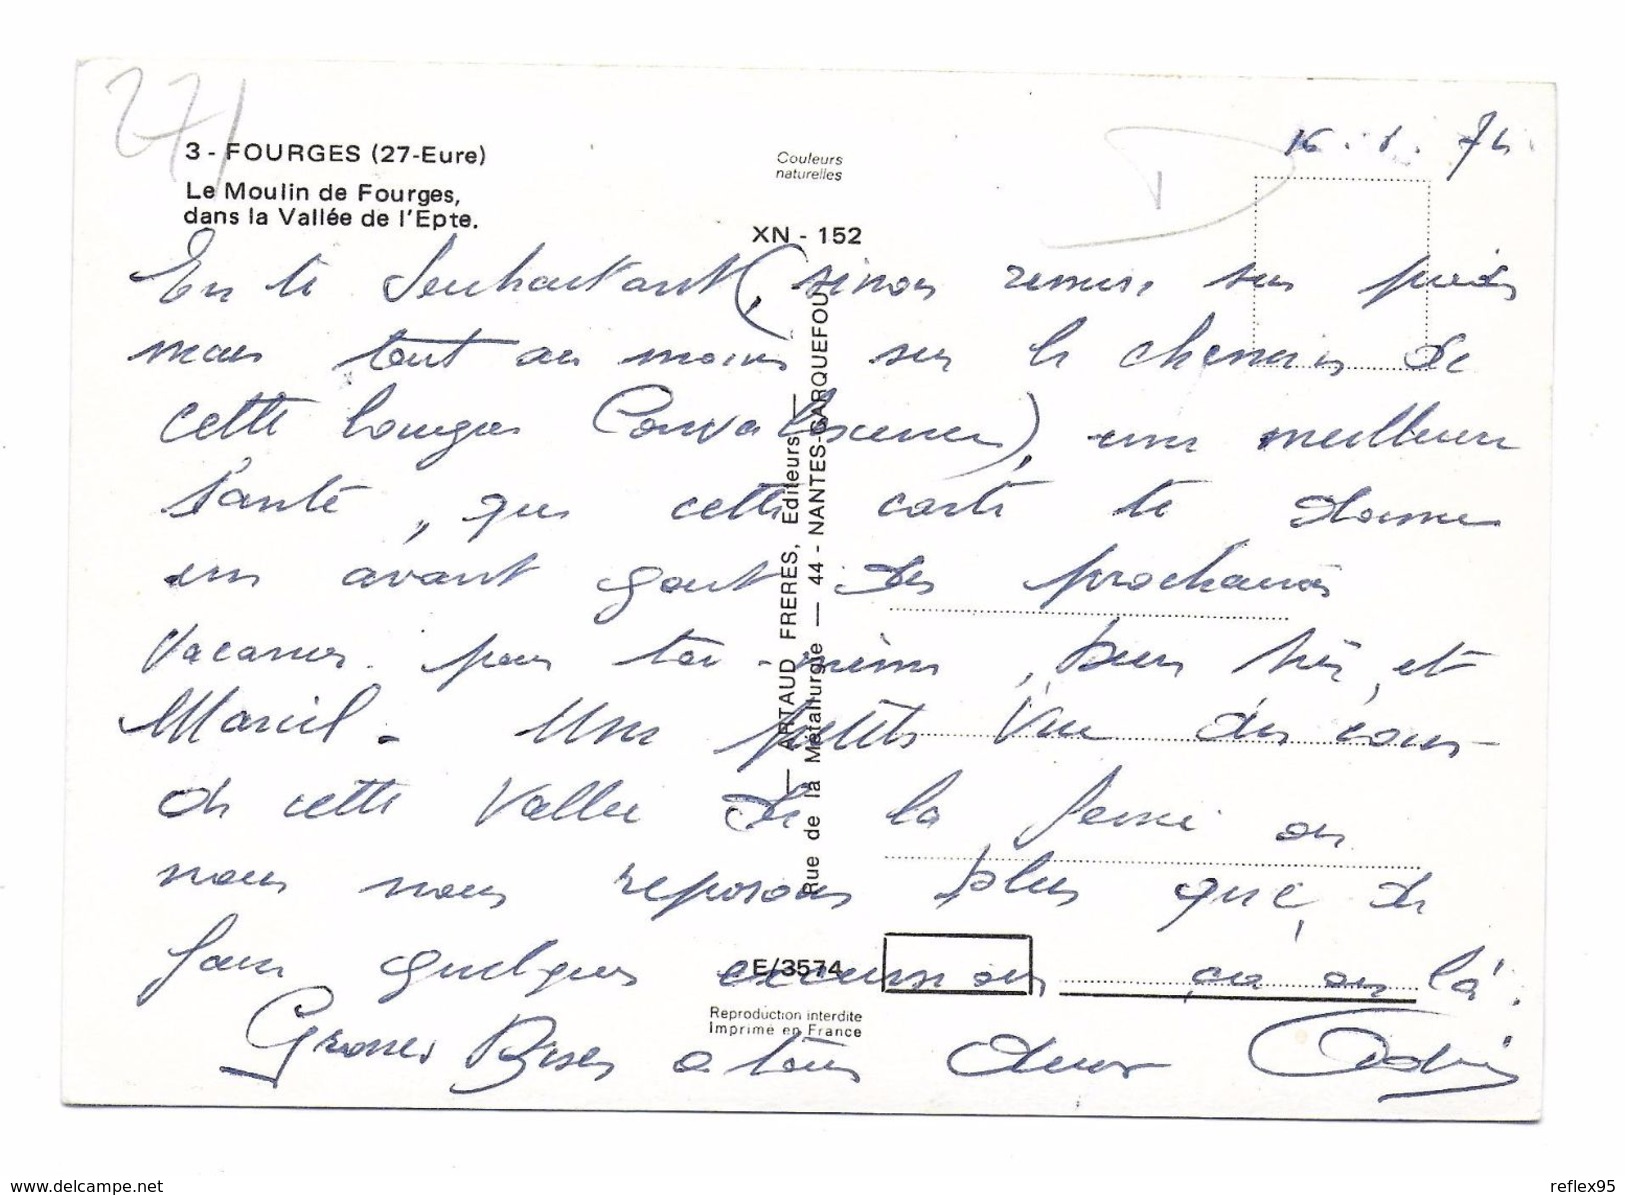 27
16.8.74
3 - FOURGES (27-Eure)
Le Moulin de Fourges,
dans la Vallée de l'Epte.
Couleurs
naturelles
XN - 152
En te souhaitant (, sinon remise sur pieds
mais tout au moins sur le chemin de
cette longue Convalescence), une meilleure
santé, que cette carte te donne
un avant gout des prochaines
vacances pour toi-même, bien sûr, et
Marcel. Une petite vue du coin
de cette Vallée de la où
nous nous reposons plus que de
faire quelques excursions çà ou là.
Grosses Bises à tous deux
— ARTAUD FRERES, Editeurs —
Rue de la Métallurgie — 44 - NANTES-CARQUEFOU
E/3574
Reproduction interdite
Imprimé en France
www.delcampe.net
reflex95